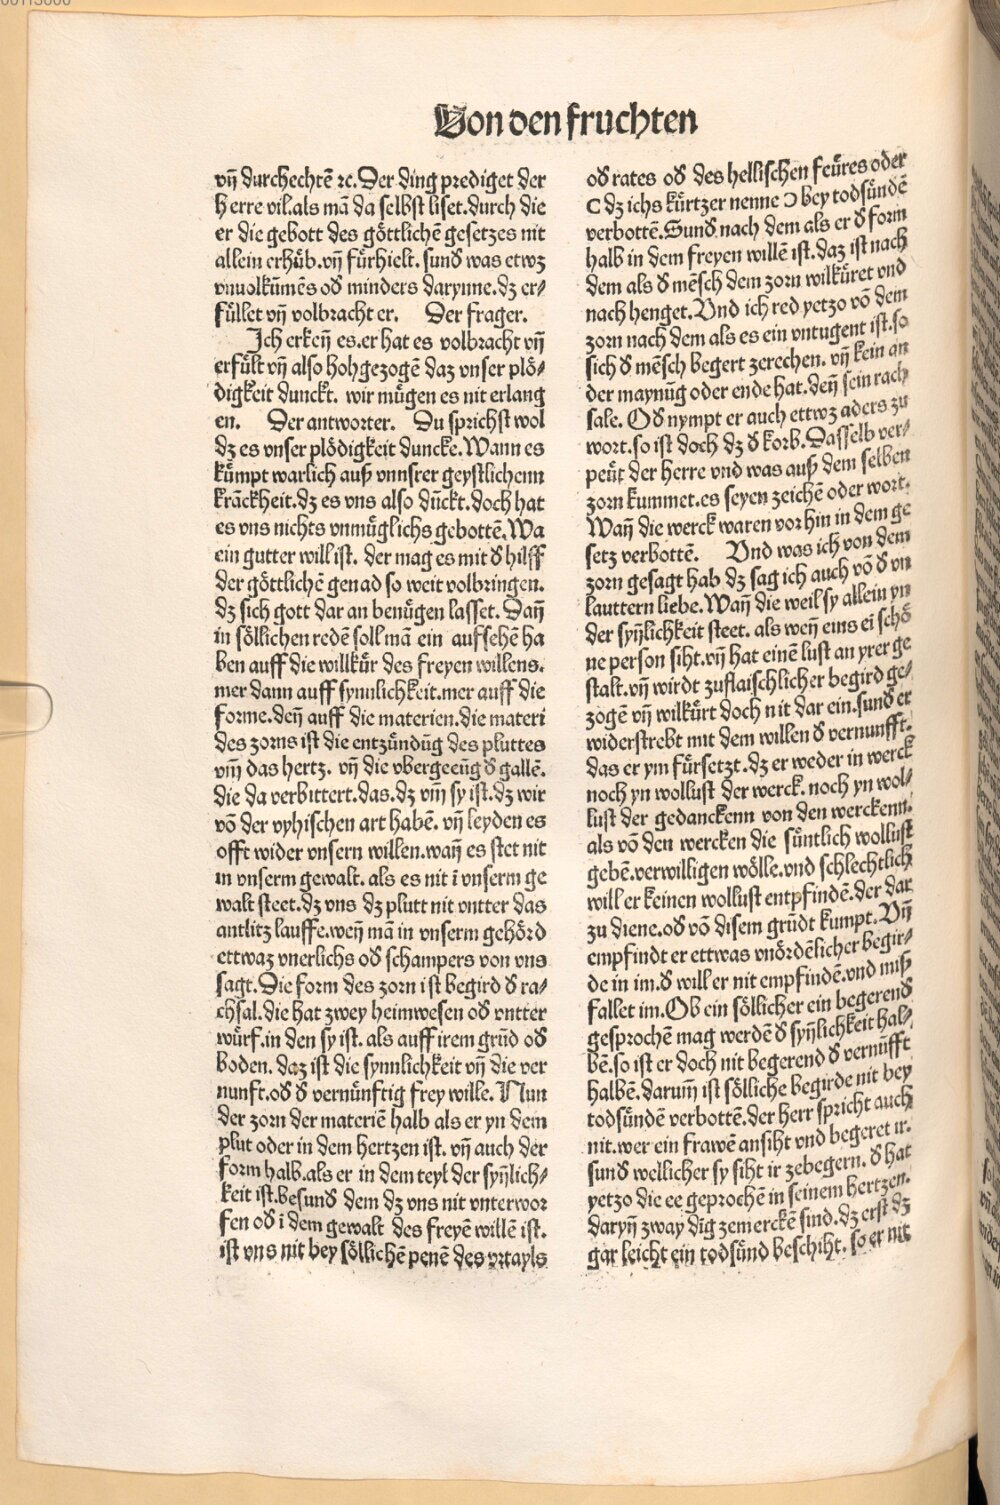 00113000
Von den fruchten
vñ durchechtē ꝛc. Der ding prediget der
herre vil. als mā da selbst liset. durch die
er die gebott des göttlichē gesetzes nit
allein erhůb. vñ fůrhielt. sund̄ was etwz
vnuolkūmēs od̄ minders darynne. dz er⸗
fůllet vñ volbracht er. Der frager.
Ich erkeñ es. er hat es volbracht vñ
erfůlt vñ also hohgezogē daz vnser plö⸗
digkeit dunckt. wir můgen es nit erlang
en. Der antworter. Du sprichst wol
dz es vnser plödigkeit duncke. Wann es
kůmpt warlich auß vnnsrer geystlichenn
kranckheit. dz es vns also dūckt. doch hat
es vns nichts vnmůglichs gebottē. Wa
ein gutter will ist. der mag es mit d̄ hilff
der göttlichē genad so weit volbringen.
dz sich gott dar an benůgen lasset. Dañ
in söllichen redē soll mā ein aufsehē ha
ben auff die willkůr des freyen willens.
mer dann auff synnlichkeit. mer auff die
forme. deñ auff die materien. die materi
des zorns ist die entzůndūg des pluttes
vm̄ das hertz. vñ die vbergeeūg d̄ gallē.
die da verbittert. das. dz vm̄ sy ist. dz wir
vō der vyhischen art habē. vñ leyden es
offt wider vnsern willen. wañ es stet nit
in vnserm gewalt. als es nit ī vnserm ge
walt steet. dz vns dz plutt nit vntter das
antlitz lauffe. weñ mā in vnserm gehörd
ettwaz vnerlichs od̄ schampers von vns
sagt. Die form des zorn ist begird d̄ ra⸗
chsal. die hat zwey heimwesen od̄ vntter
wůrf. in den sy ist. als auff irem grūd od̄
boden. daz ist die synnlichkeit vñ die ver
nunft. od̄ d̄ vernůnftig frey wille. Nun
der zorn der materiē halb als er yn dem
plut oder in dem hertzen ist. vñ auch der
form halb. als er in dem teyl der syñlich⸗
keit ist. besund̄ dem dz vns nit vnterwor
fen od̄ ī dem gewalt des freyē willē ist.
ist vns nit bey söllichē penē des vrtayls
od̄ rates od̄ des hellischen feůres oder
C dz ichs kůrtzer nenne Ɔ bey todsůndē
verbottē. Sund̄ nach dem als er d̄ form
halb in dem freyen willē ist. daz ist nach
dem als d̄ mēsch dem zorn wilkůret vnd
nach henget. Vnd ich red yetzo vō dem
zorn nach dem als es ein vntugent ist. so
sich d̄ mēsch begert zerechen. vñ kein an
der maynūg oder ende hat. deñ sein rach
sale. Od̄ nympt er auch ettwz aders zu
wort. so ist doch dz d̄ korb. Dasselb ver⸗
peůt der herre vnd was auß dem selben
zorn kummet. es seyen zeichē oder wort.
Wañ die werck waren vor hin in dem ge
setz verbottē. Vnd was ich von dem
zorn gesagt hab dz sag ich auch vō d̄ vn
lauttern liebe. Wañ die weil sy allein yn
der syñlichkeit steet. als weñ eins ei schö
ne person siht. vñ hat einē lust an yrer ge
stalt. vñ wirdt zuflaischlicher begird ge⸗
zogē vñ wilkůrt doch nit dar ein. sund̄ er
widerstrebt mit dem willen d̄ vernunfft.
das er ym fůrsetzt. dz er weder in werck
noch yn wollust der werck. noch yn wol⸗
lust der gedanckenn von den werckenn.
als vō den wercken die sůntlich wollust
gebē. verwilligen wölle. vnd schlechtlich
will er keinen wollust entpfindē. der dar
zu diene. od̄ vō disem grūdt kumpt. Vñ
empfindt er ettwas vnördēlicher begir⸗
de in im. d̄ will er nit empfindē. vnd miß
fallet im. Ob ein söllicher ein begerend
gesprochē mag werdē d̄ syñlichkeit hal⸗
bē. so ist er doch nit begerend d̄ vernůfft
halbē. darum̄ ist sölliche begirde nit bey
todsůndē verbottē. der herr spricht auch
nit. wer ein frawē ansiht vnd begeret ir.
sund̄ wellicher sy siht ir zebegern. d̄ hat
yetzo die ee geprochē in seinem hertzen.
daryñ zway dīg zemerckē sind. dz erst dz
gar leicht ein todsůnd beschiht. so er nit